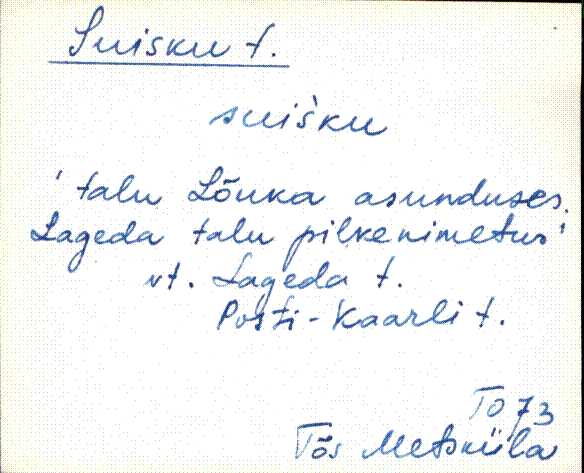 Suisku t.
suišku
' talu Lõuka asunduses.
Lageda talu pilkenimetus'
vt. Lageda t.
Posti-Kaarli t.
TO 73
Tõs Metsküla